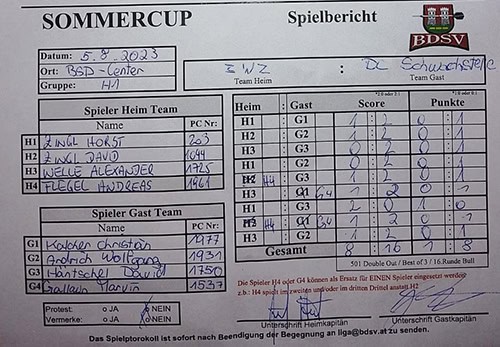 SOMMERCUP
Spielbericht
BDSV
Datum: 5.8.2023
Ort: BSD-Center
Gruppe: H1
3WZ : DC
Team Heim Team Gast
Spieler Heim Team
Name PC Nr:
H1 ZINGL HORST 203
H2 ZINGL DAVID 1044
H3 WELLE ALEXANDER 1725
H4 FLEGEL ANDREAS 1961
Spieler Gast Team
Name PC Nr:
G1 Christian 1977
G2 Wolfgang 1931
G3 David 1750
G4 Marvin 1537
Protest: o JA o NEIN
Vermerke: o JA o NEIN
Heim : Gast Score Punkte
H1 : G1 1 : 2 0 : 1
H2 : G2 1 : 2 0 : 1
H3 : G3 0 : 2 0 : 1
H1 : G2 0 : 2 0 : 1
H2 H4 : G3 0 : 2 0 : 1
H3 : G1 G4 1 : 2 0 : 1
H1 : G3 2 : 0 1 : 0
H2 H4 : G1 1 : 2 0 : 1
H3 : G2 1 : 2 0 : 1
Gesamt 8 : 16 1 : 8
501 Double Out / Best of 3 / 16.Runde Bull
Die Spieler H4 oder G4 können als Ersatz für EINEN Spieler eingesetzt werden
z.b.: H4 spielt im zweiten und/oder im dritten Drittel anstatt H2
Unterschrift Heimkapitän Unterschrift Gastkapitän
Das Spielprotokoll ist sofort nach Beendigung der Begegnung an liga@bdsv.at zu senden.